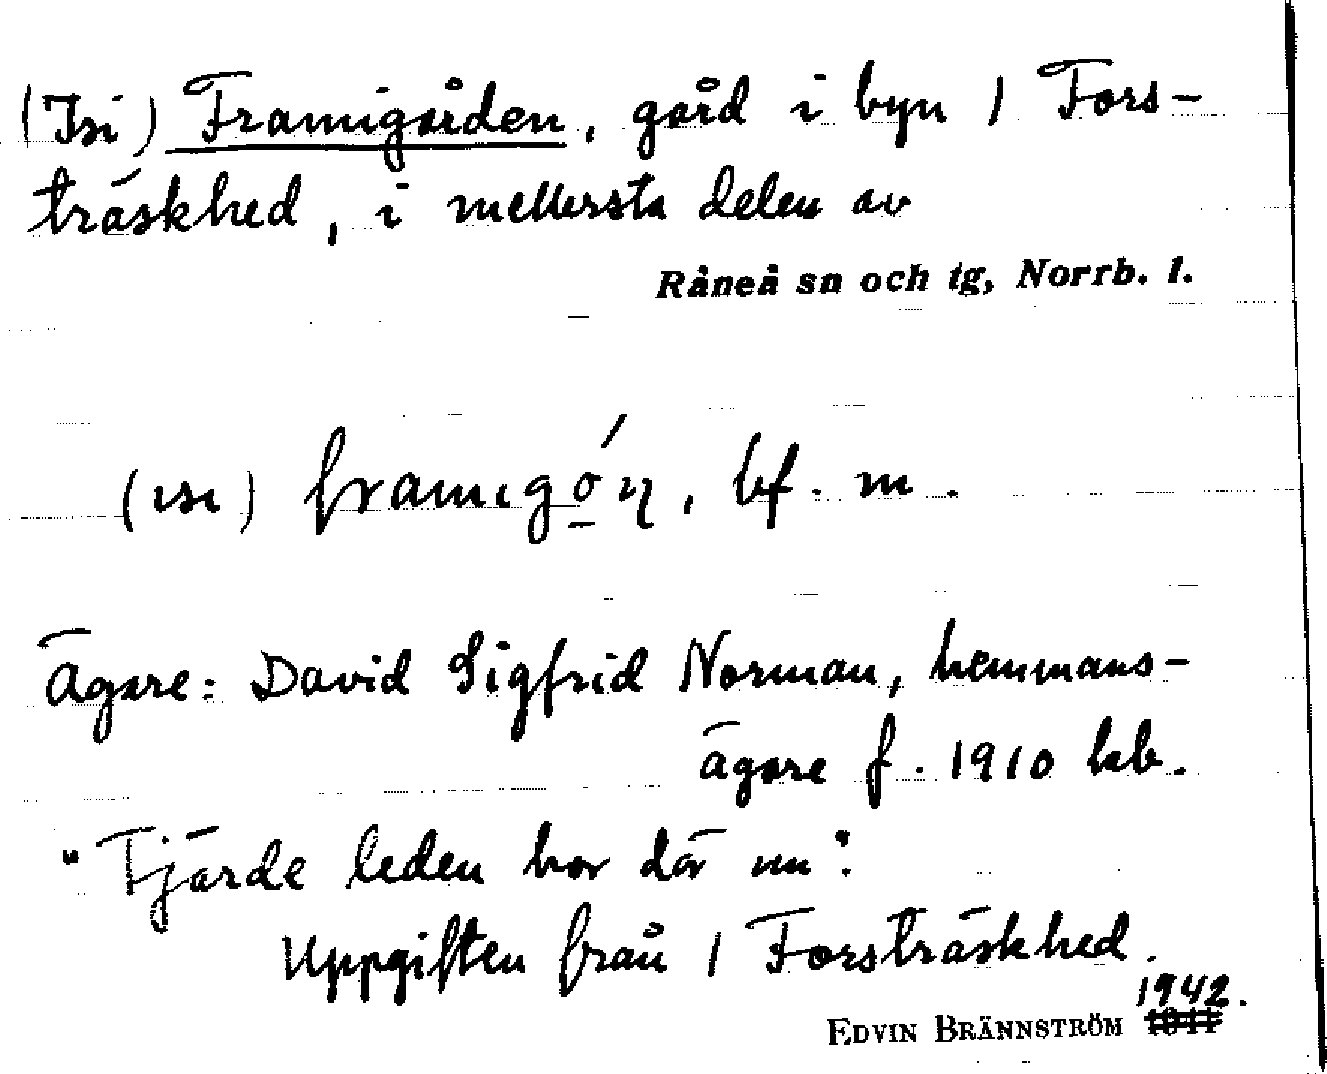 (Isi) Framigården, gård i byn 1 Fors-
träskhed, i mellersta delen av
Råneå sn och tg, Norrb. l.
(ısı) framıgǫ́ɳ, bf. m.
Ägare: David Sigfrid Norman, hemmans-
ägare f. 1910 hb.
"Fjärde leden bor där nu".
Uppgiften från 1 Forsträskhed.
1942.
EDVIN BRÄNNSTRÖM 1941